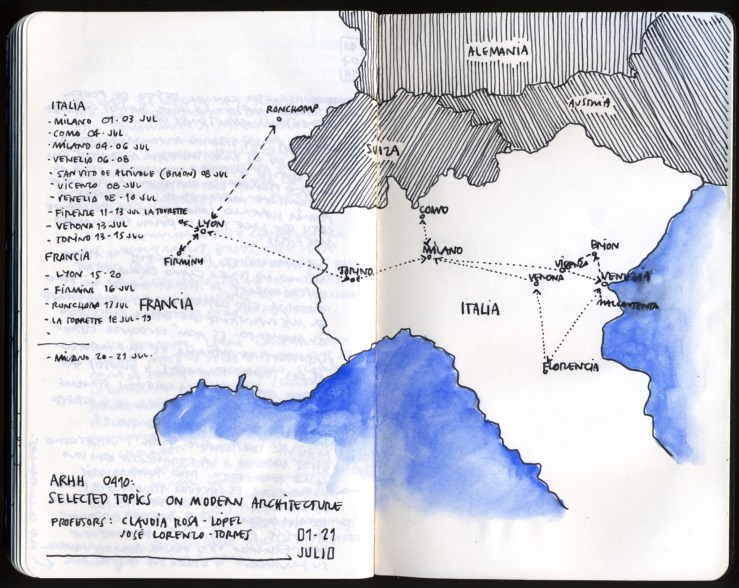 ITALIA
- MILANO 01-03 JUL
- COMO 04-JUL
- MILANO 04-06 JUL
- VENEZIA 06-08
- SAN VITO DE ALTIVOLE (BRION) 08 JUL
- VICENZO 08 JUL
- VENEZIA 08-10 JUL
- FIRENZE 11-13 JUL
- VERONA 13 JUL
- TORINO 13-15 JUL
FRANCIA
- LYON 15-20
- FIRMINI 16 JUL
- RONCHOMP 17 JUL
- LA TOURETTE 18 JUL-19
- MILANO 20-21 JUL.
RONCHOMP
LA TOURETTE
LYON
FIRMINY
FRANCIA
TORINO
ALEMANIA
AUSTRIA
SUIZA
COMO
MILANO
BRION
VICENZA
VERONA
VENEZIA
ITALIA
FLORENCIA
ARHH 0410:
SELECTED TOPICS ON MODERN ARCHITECTURE
PROFESORS: CLAUDIA ROSA-LÓPEZ
JOSÉ LORENZO-TORRES
01-21
JULIO